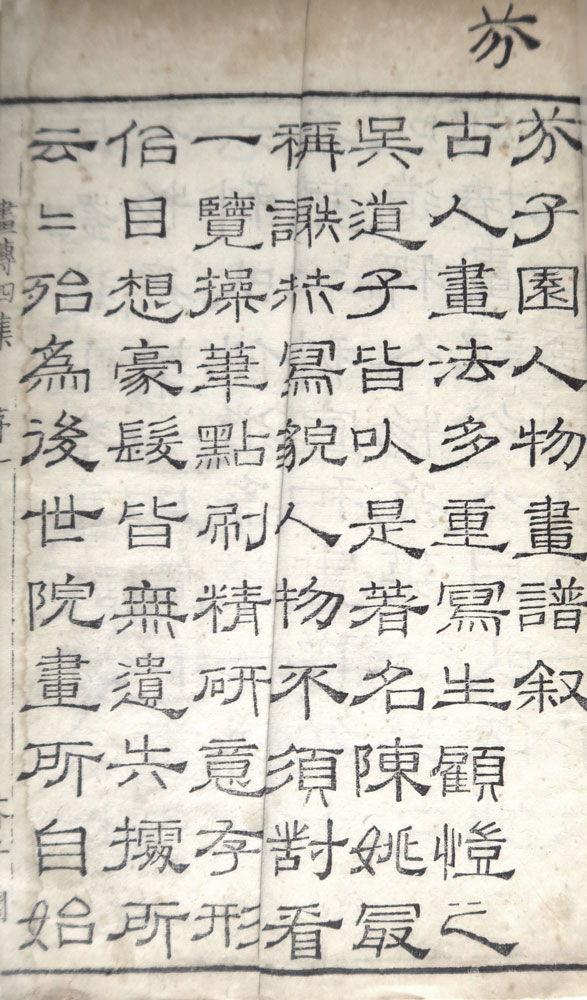 芥
芥子園人物畫譜叙
古人畫法多重寫生顧愷之
吳道子皆以是著名陳姚最
稱謝赫寫貌人物不須對看
一覽操筆點刷精研意存形
佀目想豪髮皆無遺失據所
云〻殆為後世院畫所自始
畫傳四集 序一